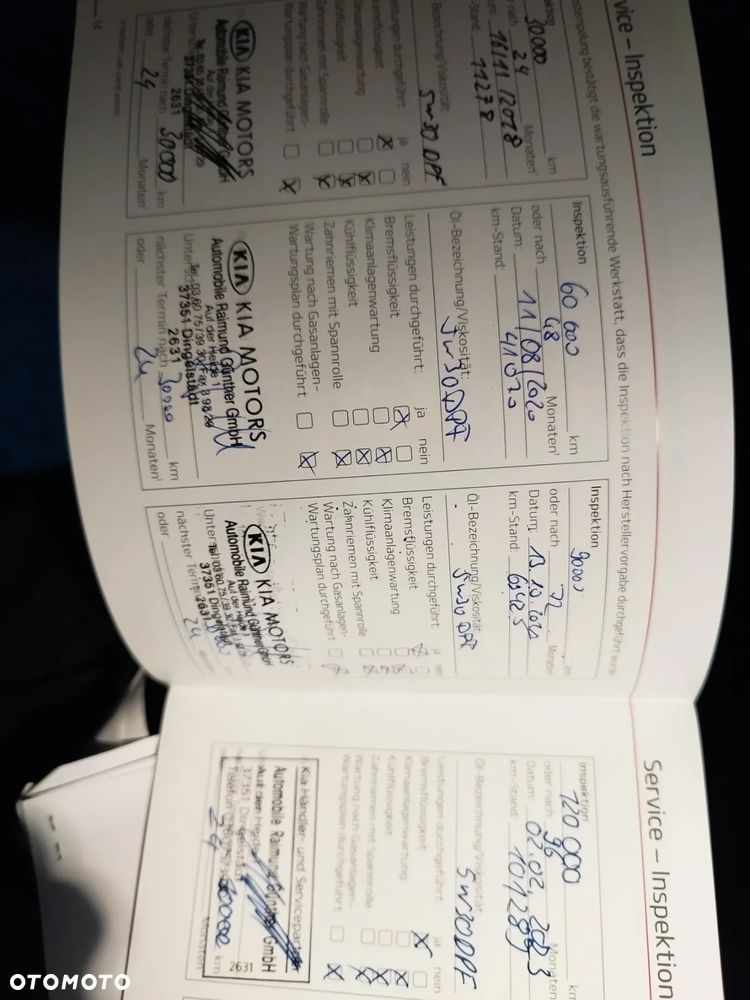 Service – Inspektion
30000 km
oder nach 24 Monaten¹
16/11/2018
km-Stand: 11278
5W30 DPF
Leistungen durchgeführt: ja nein
Bremsflüssigkeit
Klimaanlagenwartung
Kühlflüssigkeit
Zahnriemen mit Spannrolle
Wartung nach Gasanlagen-
Wartungsplan durchgeführt
KIA KIA MOTORS
Automobile Raimund Günther GmbH
2631
nächster Termin nach 30000 km
oder 24 Monaten¹
14
Stempelung bestätigt die wartungsausführende Werkstatt, dass die Inspektion nach Herstellervorgabe durchgeführt wurde
Inspektion 60 000 km
oder nach 48 Monaten¹
Datum: 11/08/2020
km-Stand: 41070
Öl-Bezeichnung/Viskosität:
5W30 DPF
Leistungen durchgeführt: ja nein
Bremsflüssigkeit
Klimaanlagenwartung
Kühlflüssigkeit
Zahnriemen mit Spannrolle
Wartung nach Gasanlagen-
Wartungsplan durchgeführt
KIA KIA MOTORS
Automobile Raimund Günther GmbH
Auf der Heide 1
Tel. 03 60 75/39 30, Fax 3 98 29
37351 Dingelstädt
2631
nächster Termin nach 30000 km
oder 24 Monaten¹
Inspektion 90000 km
oder nach 72 Monaten
Datum: 13.10.2021
km-Stand:
Öl-Bezeichnung/Viskosität:
5W30 DPF
Leistungen durchgeführt: ja nein
Bremsflüssigkeit
Klimaanlagenwartung
Kühlflüssigkeit
Zahnriemen mit Spannrolle
Wartung nach Gasanlagen-
Wartungsplan durchgeführt
KIA KIA MOTORS
Automobile Raimund Günther GmbH
Auf der Heide 1
37351 Dingelstädt
2631
nächster Termin
oder 24 Monaten
Service – Inspektion
Inspektion 120 000 km
oder nach 96 Monaten
Datum: 02.02.2023
km-Stand: 101289
Öl-Bezeichnung/Viskosität:
5W30 DPF
Leistungen durchgeführt: ja nein
Bremsflüssigkeit
Klimaanlagenwartung
Kühlflüssigkeit
Zahnriemen mit Spannrolle
Wartung nach Gasanlagen-
Wartungsplan durchgeführt
Kia Händler- und Servicepartner
Automobile Raimund Günther GmbH
Auf der Heide
37351 Dingelstädt
2631
30000 km
24 Monaten
OTOMOTO